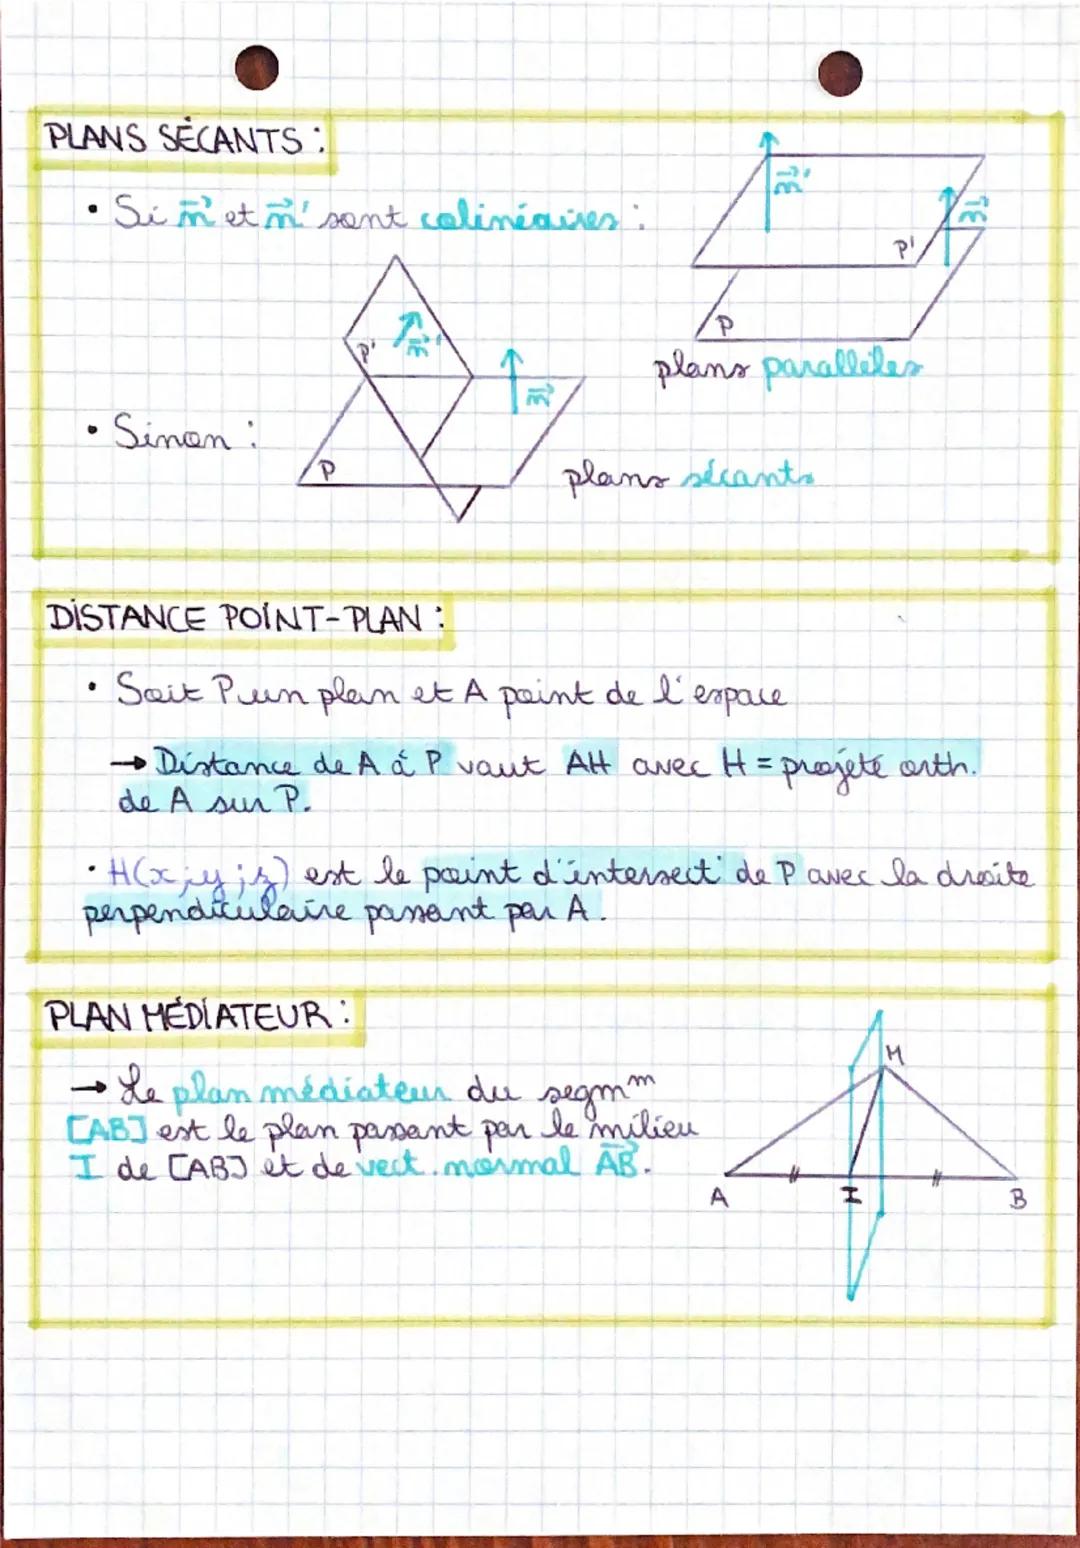 PLANS SÉCANTS :
• Si n⃗ et n⃗' sont colinéaires :
n⃗'
n⃗
P'
P
plans parallèles
n⃗'
P'
n⃗
• Sinon :
P
plans sécants
DISTANCE POINT-PLAN :
• Soit P un plan et A point de l'espace
→ Distance de A à P vaut AH avec H = projeté orth.
de A sur P.
• H(x;y;z) est le point d'intersect° de P avec la droite
perpendiculaire passant par A.
PLAN MÉDIATEUR :
→ Le plan médiateur du segmᵐ
[AB] est le plan passant par le milieu
I de [AB] et de vect. normal AB⃗.
M
A
I
B